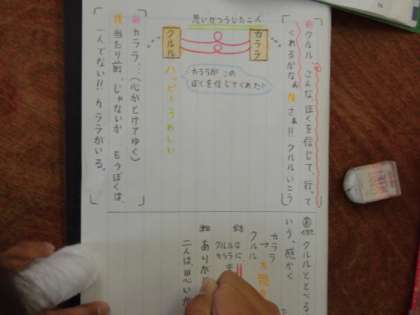 クルル こんなぼくを信じて、行って
くれるかなぁ さぁ!! クルルいこう
思いがつうじた二人
カララ
クルル
カララがこの
ぼくを信じてくれた
ハッピー うれしい
カララ…(心がとけてゆく)
当たり前じゃないか もうぼくは、
一人でない!! カララがいる。
クルルととべる
いう、感かく
カララ
クルル
クルルは
カララに
ありが
二人は